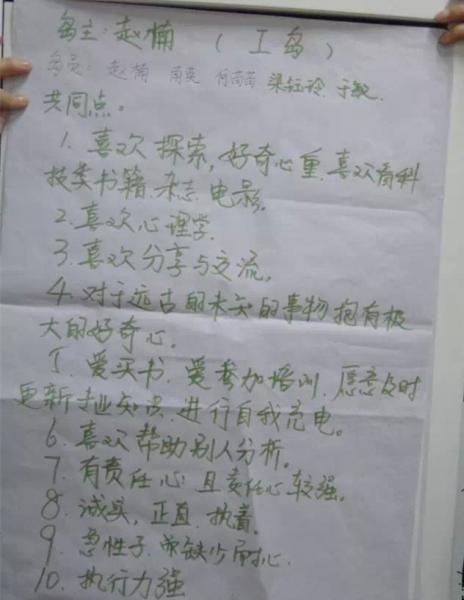 岛主：赵楠 （工岛）
岛员：赵楠 南英 何苗苗 梁钰玲 于敏
共同点。
1. 喜欢探索，好奇心重、喜欢看科
技类书籍、杂志、电影。
2. 喜欢心理学.
3. 喜欢分享与交流。
4. 对于远古的未知的事物抱有极
大的好奇心。
5. 爱买书、爱参加培训、愿意及时
更新专业知识、进行自我充电。
6. 喜欢帮助别人分析。
7. 有责任心且责任心较强。
8. 诚实、正直、执着。
9. 急性子、缺少耐心.
10. 执行力强